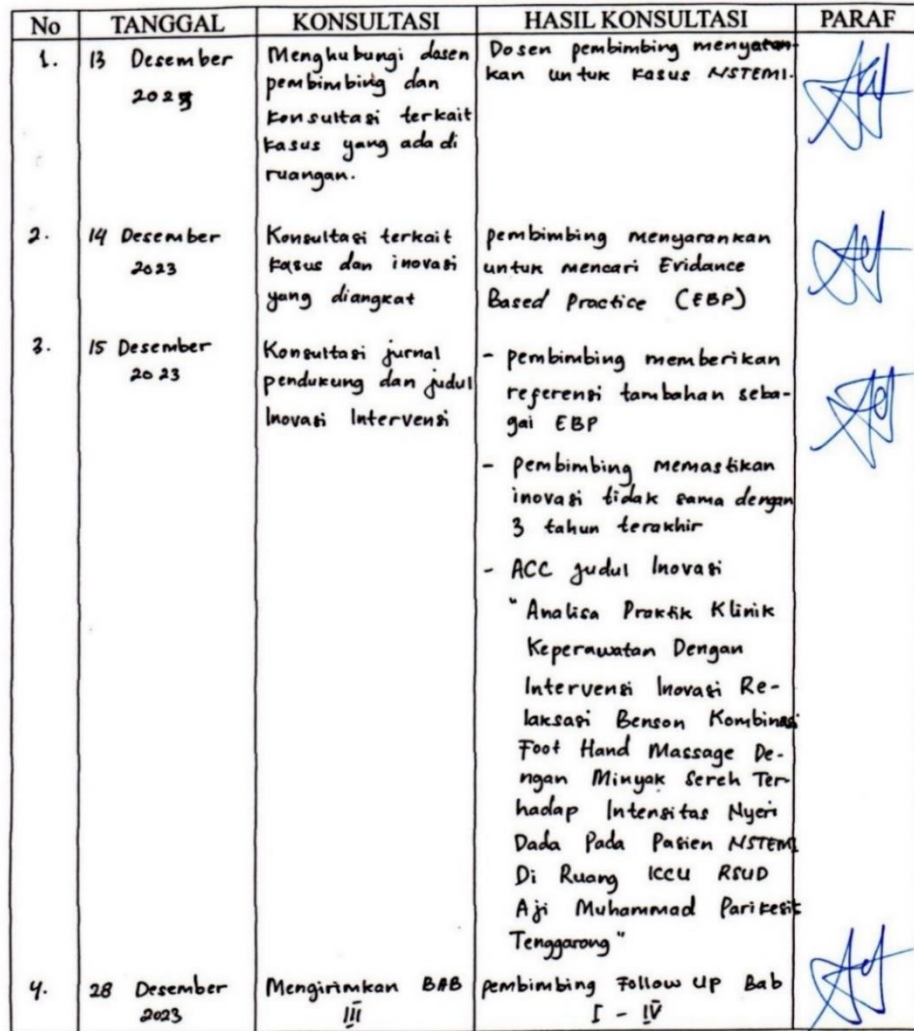 No TANGGAL KONSULTASI HASIL KONSULTASI PARAF
1. 13 Desember 2023
Menghubungi dosen
pembimbing dan
konsultasi terkait
kasus yang ada di
ruangan.
Dosen pembimbing menyaran-
kan untuk kasus NSTEMI.
2. 14 Desember
2023
Konsultasi terkait
kasus dan inovasi
yang diangkat
pembimbing menyarankan
untuk mencari Evidance
Based Practice (EBP)
3. 15 Desember
2023
Konsultasi jurnal
pendukung dan judul
Inovasi Intervensi
- pembimbing memberikan
referensi tambahan seba-
gai EBP
- pembimbing memastikan
inovasi tidak sama dengan
3 tahun terakhir
- ACC judul Inovasi
"Analisa Praktik Klinik
Keperawatan Dengan
Intervensi Inovasi Re-
laksasi Benson Kombinasi
Foot Hand Massage De-
ngan Minyak Sereh Ter-
hadap Intensitas Nyeri
Dada Pada Pasien NSTEMI
Di Ruang ICCU RSUD
Aji Muhammad Parikesit
Tenggarong"
4. 28 Desember
2023
Mengirimkan BAB
III
pembimbing Follow Up Bab
I - IV